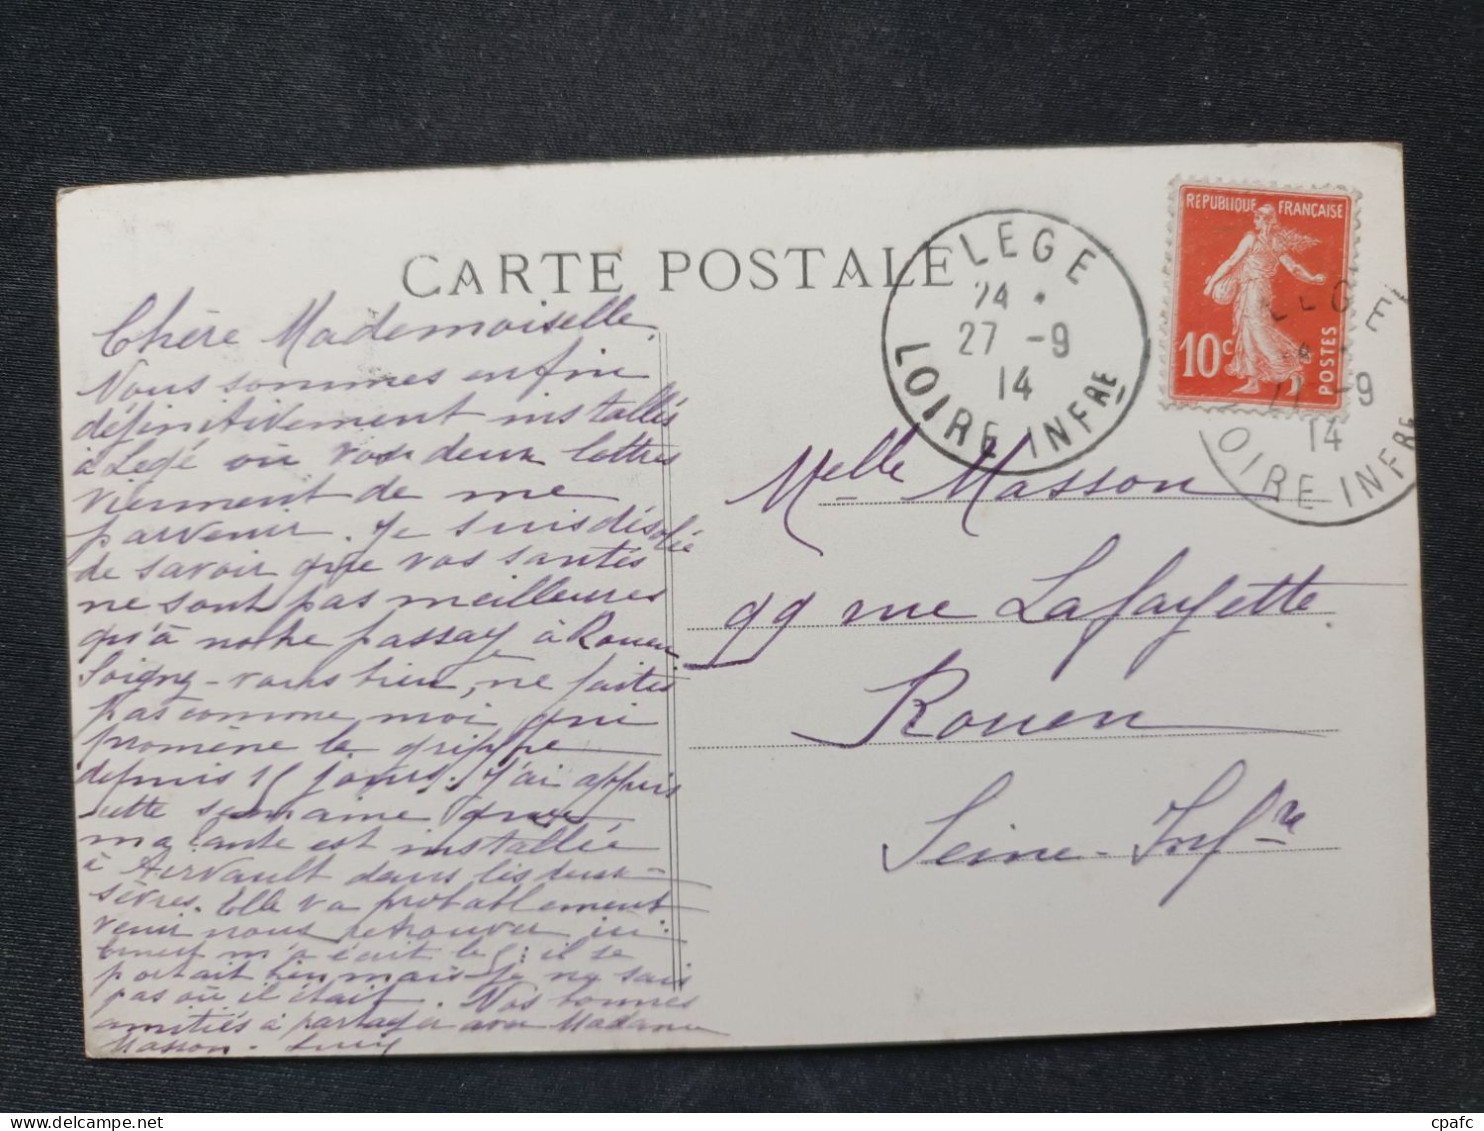 CARTE POSTALE
Chère Mademoiselle,
Nous sommes enfin
définitivement installés
à Legé où vos deux lettres
viennent de me
parvenir. Je suis désolée
de savoir que vos santés
ne sont pas meilleures
qu'à notre passage à Rouen
Soignez-vous bien, ne faites
pas comme moi qui
promène la grippe
depuis 15 jours. J'ai appris
cette semaine que
ma tante est installée
à Airvault dans les deux-
sèvres. Elle va probablement
venir nous retrouver ici.
m'a écrit le 5; il se
portait bien mais je ne sais
pas où il était. Nos bonnes
amitiés à partager avec Madame
Masson.
LEGE
24 *
27 -9
14
LOIRE INFRE
REPUBLIQUE FRANÇAISE
10c
POSTES
LEGE
27 -9
14
LOIRE INFRE
Melle Masson
99 rue Lafayette
Rouen
Seine-Infre
cpafc